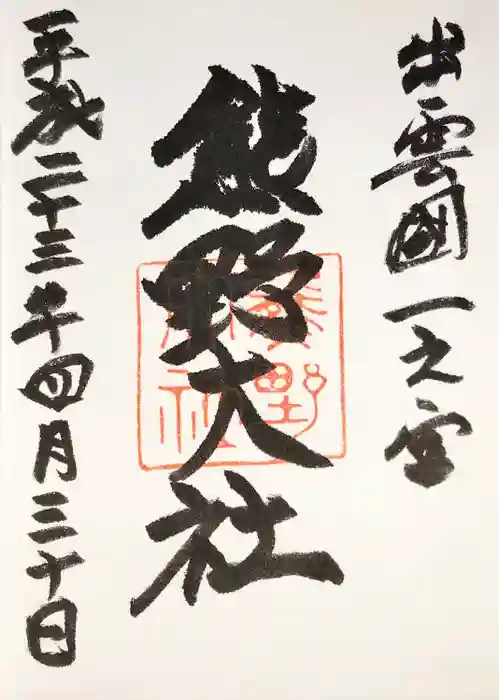 出雲國一之宮
熊野大社
平成二十三年四月三十日